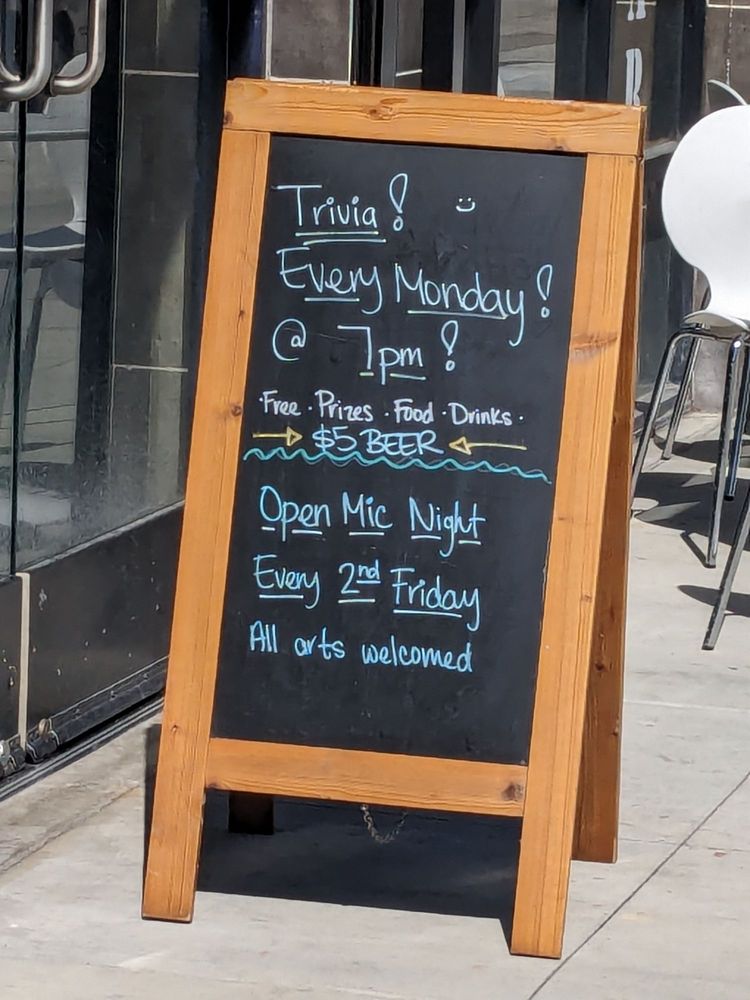 Trivia! :)
Every Monday!
@ 7pm!
· Free · Prizes · Food · Drinks ·
→ $5 BEER ←
Open Mic Night
Every 2nd Friday
All arts welcomed
R